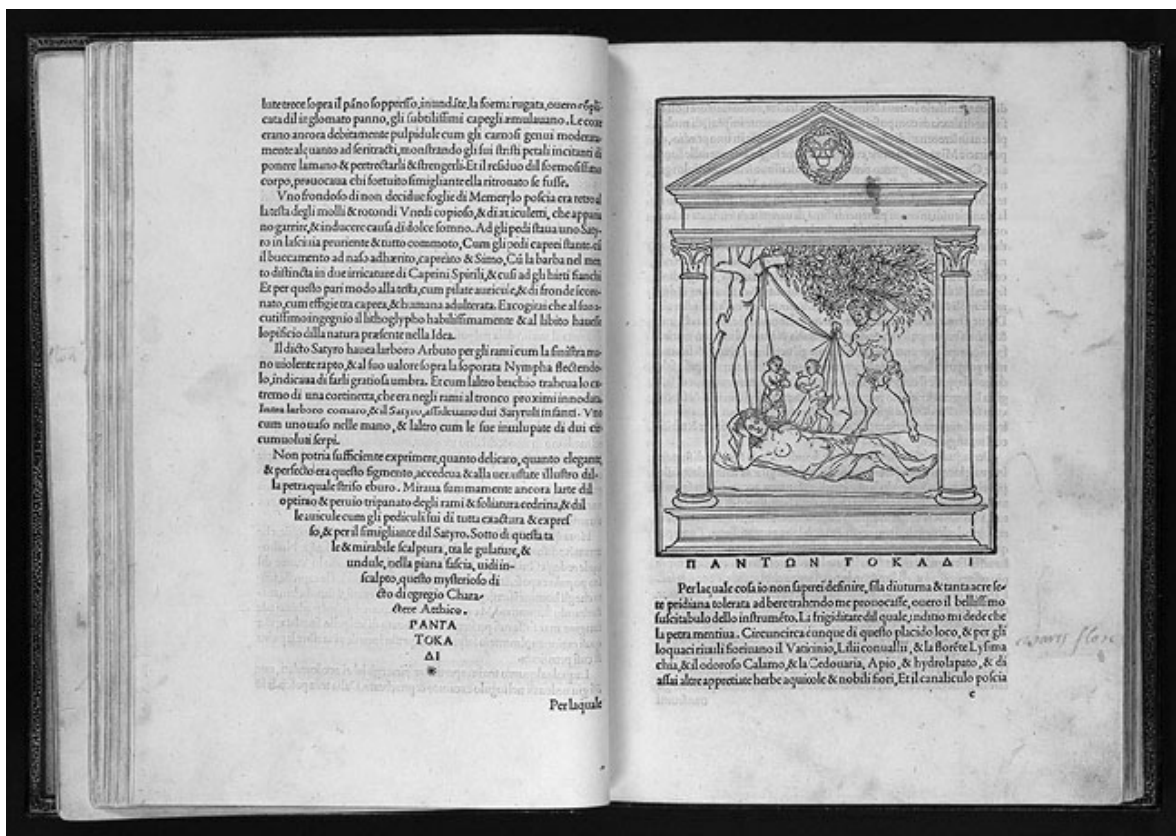 lute trece sopra il páno soppresso, inundáte, la forma rugata, ouero cõpli
cata dil inglomato panno, gli subtilissimi capegli æmulauano. Le coxe
erano ancora debitamente pulpidule cum gli carnosi genui moderata
mente alquanto ad se ritracti, monstrando gli sui stricti petali incitanti di
ponere la mano & pertrectarli & strengerli. Et il residuo dil formosissimo
corpo, prouocaua chi fortuito simigliante ella ritrouato se fusse.
Vno frondoso di non decidue foglie di Memerylo poscia era retro al
la testa degli molli & rotondi Vnedi copioso, & di auiculetti, che appariua
no garrire, & inducere causa di dolce somno. Ad gli pedi staua uno Saty
ro in lasciuia pruriente & tutto commoto, Cum gli pedi caprei stante. cũ
il buccamento ad naso adhærito, capreato & Simo, Cũ la barba nel men
to distincta in due irricature di Caprini Spirili, & cusi ad gli hirti fianchi
Et per questo pari modo alla testa, cum pilate auricule, & di fronde icoro
nato, cum effigie tra caprea, & humana adulterata. Excogitai che al suo a
cutissimo ingegnio il lithoglypho habilissimamente & al libito hauesse
lopificio dilla natura præsente nella Idea.
Il dicto Satyro hauea larboro Arbuto per gli rami cum la sinistra ma
no uiolente rapto, & al suo ualore sopra la soporata Nympha flectendo
lo, indicaua di farli gratiosa umbra. Et cum laltro brachio traheua lo ex
tremo di una cortinetta, che era negli rami al tronco proximi innodata.
Intra larboro comaro, & il Satyro, assideuano dui Satyruli infanti. Vno
cum uno uaso nelle mano, & laltro cum le sue inuilupate di dui cir
cumuoluti serpi.
Non potria sufficiente exprimere, quanto delicato, quanto elegante,
& perfecto era questo figmento, accedeua & alla uenustate illustro dil-
la petra quale striso eburo. Miraua summamente ancora larte dil
optimo & peruio tripanato degli rami & foliatura cedrina, & dil
le auicule cum gli pediculi sui di tutta exactura & expres
so, & per il simigliante dil Satyro. Sotto di questa ta
le & mirabile scalptura, tra le gulature, &
undule, nella piana fascia, uidi in-
scalpto, questo mysterioso di
cto di egregio Chara-
ctere Atthico.
ΡΑΝΤΑ
ΤΟΚΑ
ΔΙ
*
Per laquale
ΠΑΝΤΩΝ ΤΟΚΑΔΙ
Per laquale cosa io non saperei definire, si la diuturna & tanta acre se-
te pridiana tolerata ad bere trahendo me prouocasse, ouero il bellissimo
suscitabulo dello instrumẽto. La frigiditate dil quale, inditio mi dede che
la petra mentiua. Circuncirca dunque di questo placido loco, & per gli
loquaci riuuli fioriuano il Vaticinio, Lilii conuallii, & la florẽte Lysima
chia, & il odoroso Calamo, & la Cedouaria, Apio, & hydrolapato, & di
assai altre appretiate herbe aquicole & nobili fiori, Et il canaliculo poscia
e